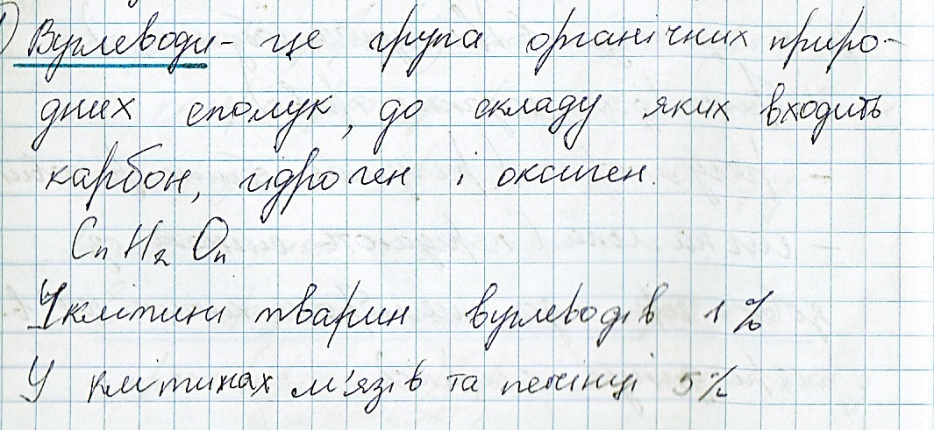 ) Вуглеводи - це група органічних приро-
дних сполук, до складу яких входить
карбон, гідроген і оксиген.
Cn H2 On
У клітині тварин вуглеводів 1%
У клітинах м'язів та печінці 5%